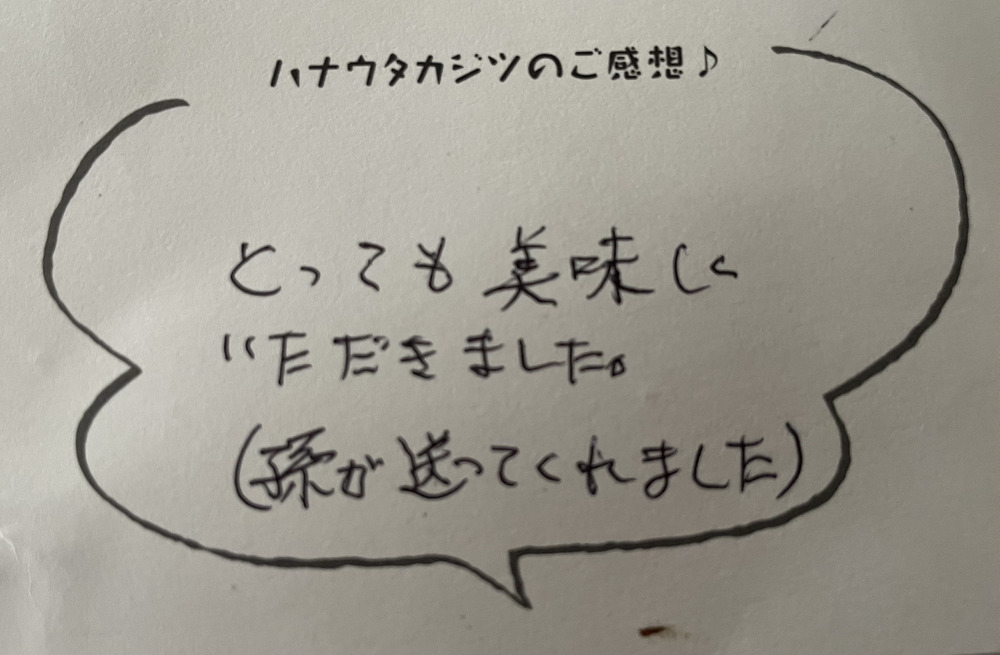 ハナウタカジツのご感想♪
とっても美味しく
いただきました。
(孫が送ってくれました)